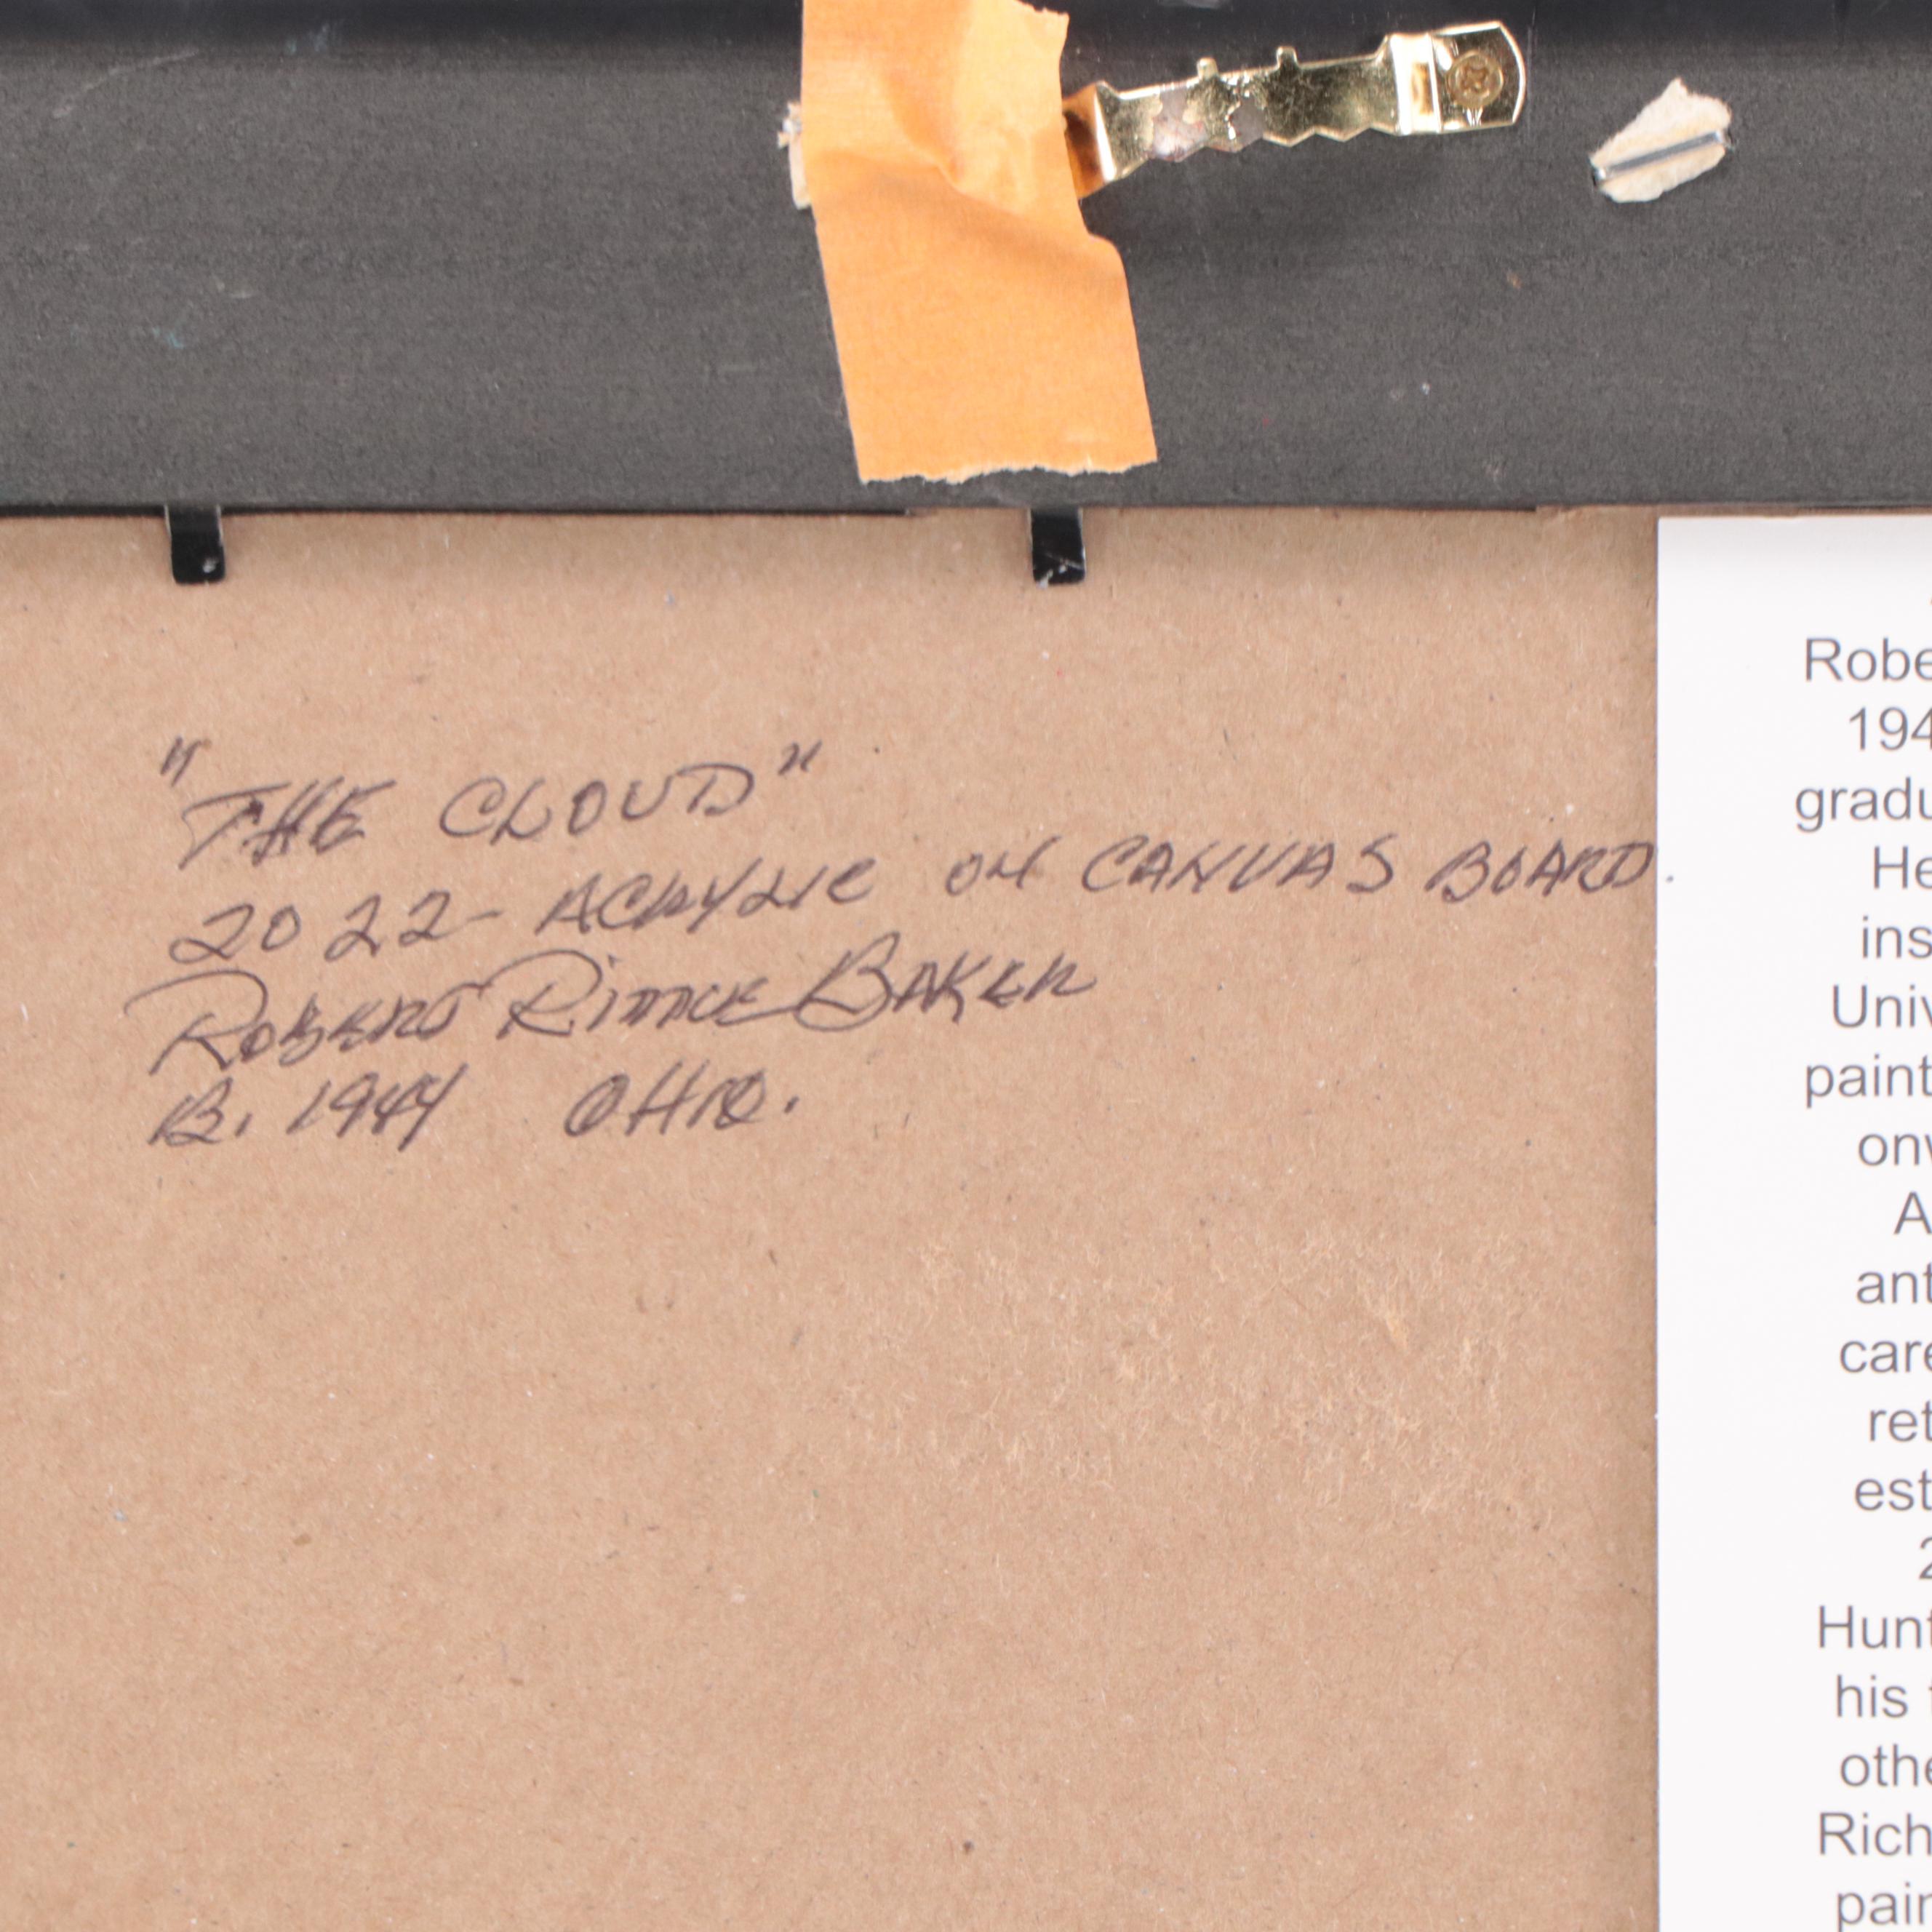 "THE CLOUD"
2022 - ACRYLIC ON CANVAS BOARD.
ROBERT BAKER
B. 1944 OHIO.
Robe
194
gradu
He
ins
Univ
paint
onw
A
ant
care
ret
est
2
Hunt
his
othe
Rich
pain